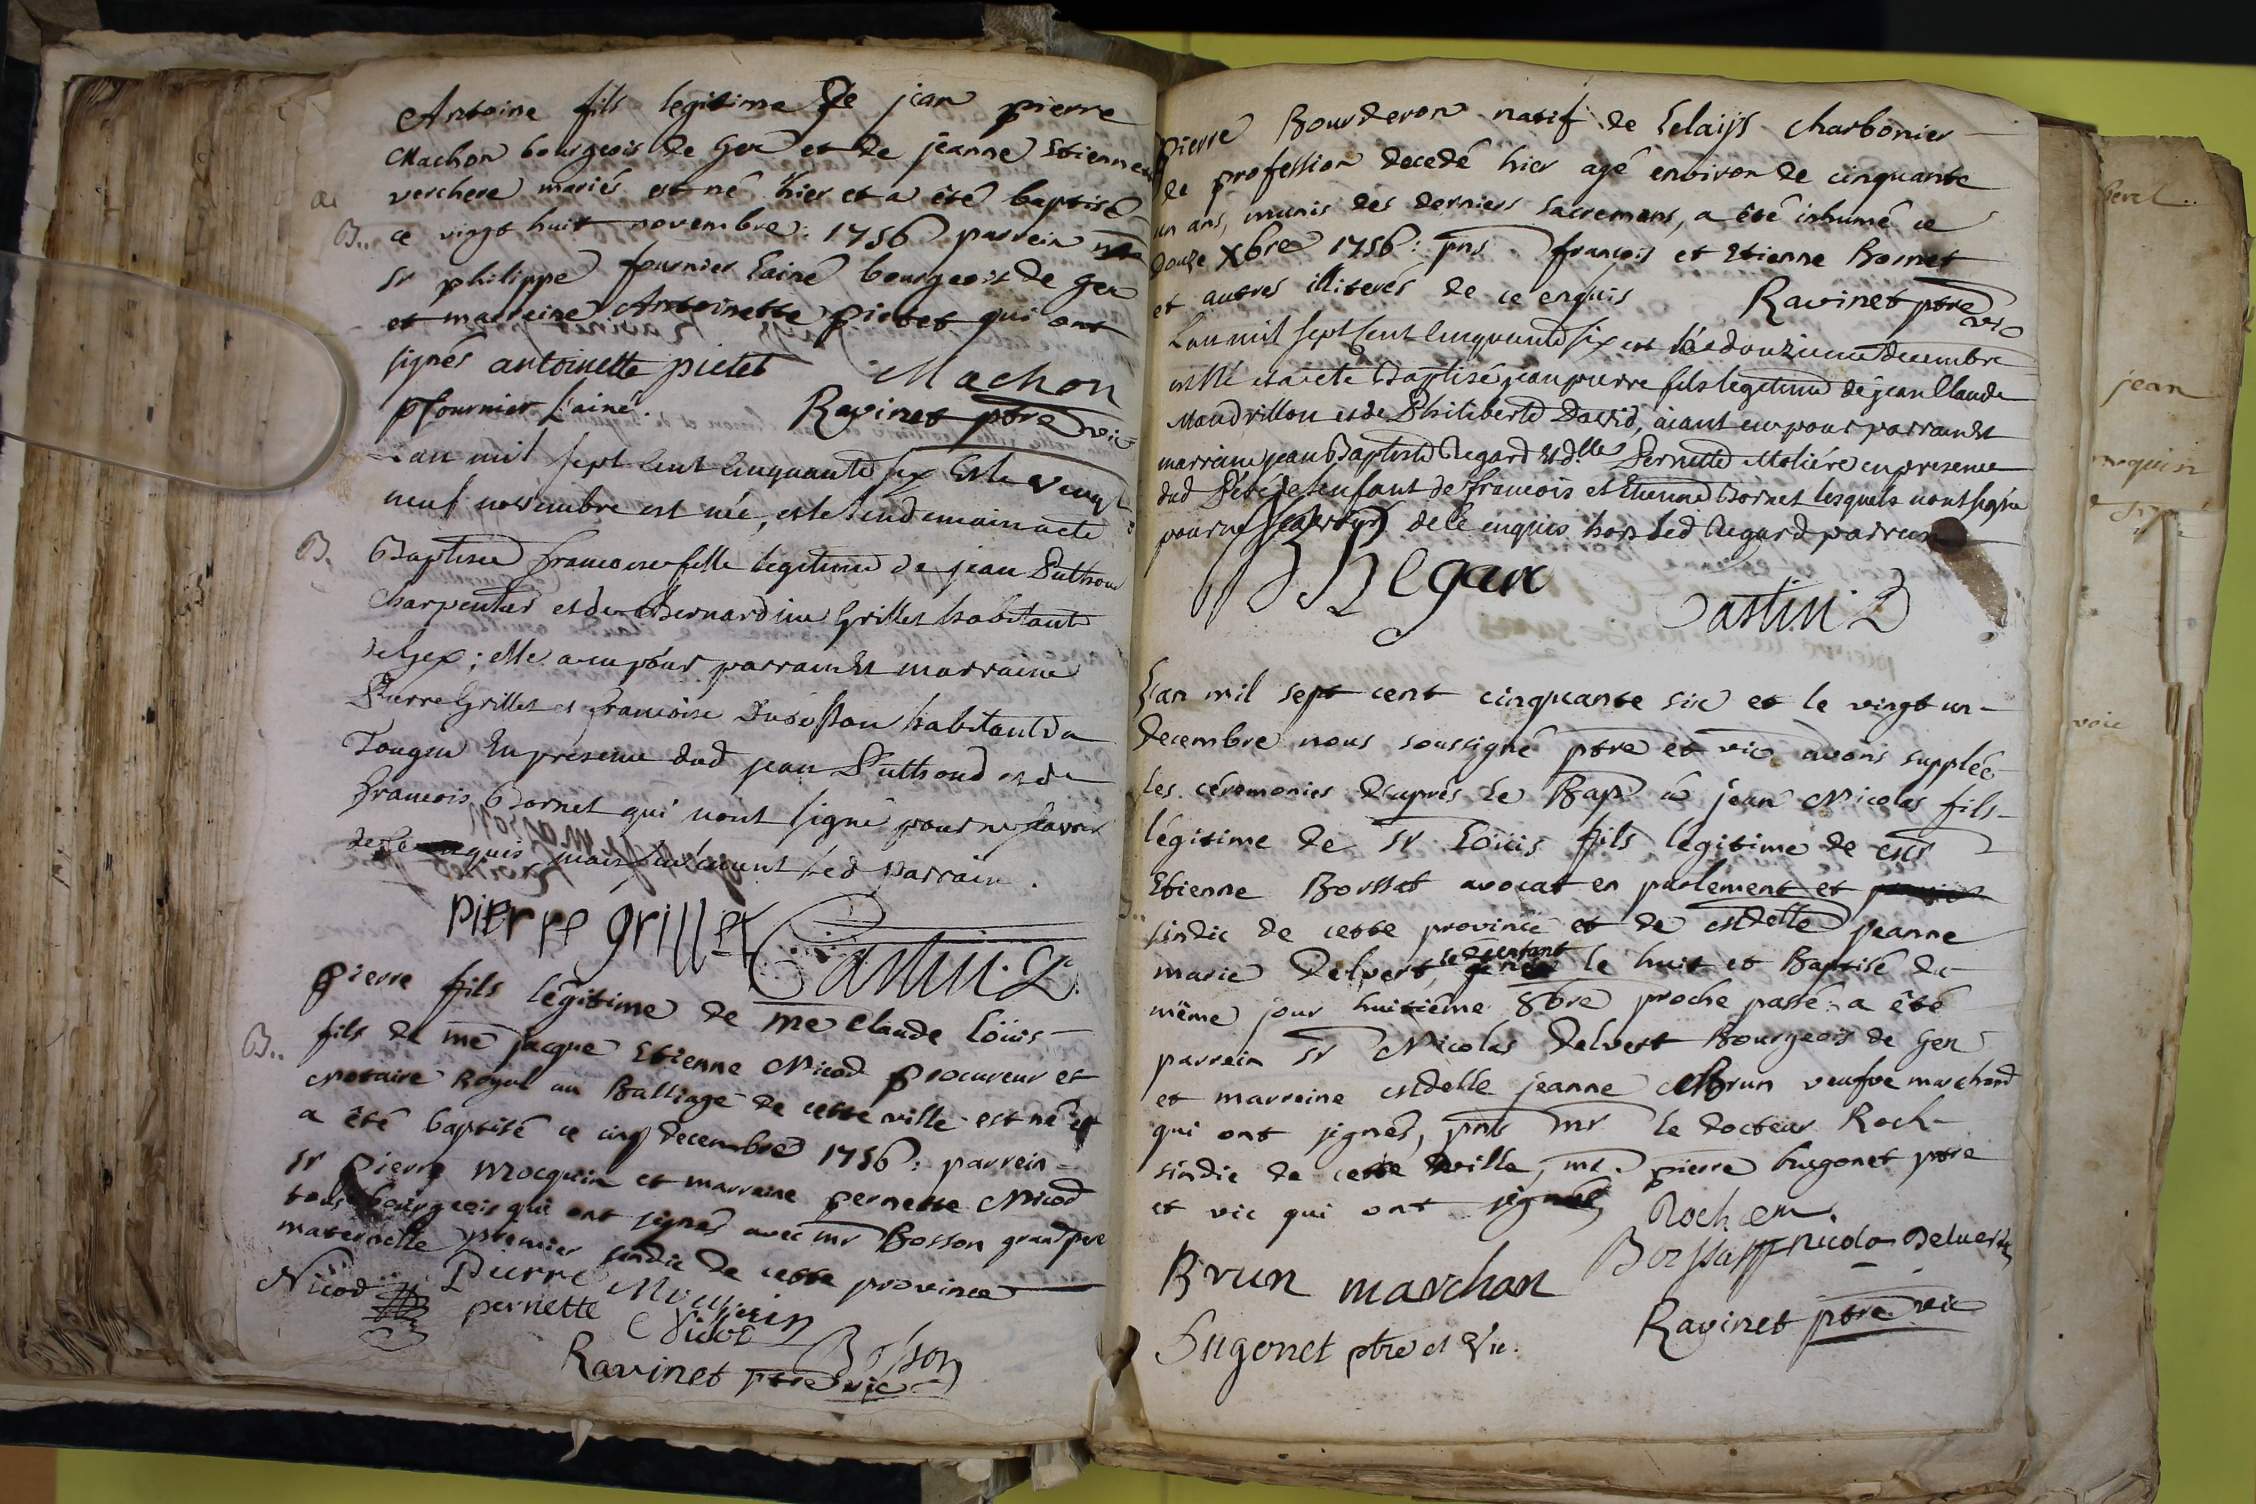 Antoine fils legitime De jean pierre
Machon bourgeois de Gex et de jeanne Etiennette
verchere mariés est né hier et a été baptisé
ce vingt huit novembre: 1756 parrein
B..
sr philippe fournier lainé bourgeois de gex
et marreine Antoinette pictet qui ont
signés antoinette pictet Machon
pfournier l'ainé. Ravinet ptre vic
Lan mil sept cent cinquante six Et le vingt
neuf novembre est née, et le lendemain a eté
B. Baptisée francoise fille legitime de jean Puthoud
charpentier et de Bernardine Grillet habitants
de Gex; elle a eu pour parrain Et marraine
Pierre Grillet et francoise habitants a
Tougin En presence dud jean Puthoud et de
francois Bornet qui nont signé pour ne scavoir
de ce enquis, mais led parrain.
pierre grillet Castin. D.
pierre fils légitime de me Claude Loüis
B.. fils de me jacque Etienne Nicod procureur et
Notaire Royal au Balliage de cette ville est né et
a été baptisé ce cinq decembre 1756: parrein
sr pierre Mocquin et marreine pernette Nicod
tous bourgeois qui ont signés avec mr Bosson grand pere
maternelle premier sindic de cette province
Nicod Pierre Mocquin
pernette Nicod
Bosson
Ravinet ptre vic
pierre Bourderon natif de Lelaijs charbonier
de profession decedé hier agé environ de cinquante
un ans, munis des derniers sacremens, a été inhumé ce
douze Xbre 1756: pns françois et Etienne Bornet
et autres illiterés de ce enquis Ravinet ptre vic
Lan mil sept cent cinquante six et le douzieme decembre
est Né et a eté Baptisé jean pierre fils legitime de jean Claude
Mandrillon et de Philiberte David, aiant eu pour parrain Et
marraine jean Baptiste Regard Et dlle Pernette Moliére en presence
dud Pere de lenfant de francois et Etienne Bornet lesquels nont signé
pour ne scavoir de ce enquis hors led Regard parrein
B Regard
Castin. D
L'an mil sept cent cinquante six et le vingt un
Decembre nous soussigné ptre et vic avons supplée
les cérémonies d'aprés le Bap a jean Nicolas fils
légitime de sr Loüis fils légitime de
Etienne Borssat avocat en parlement et
sindic de cette province et de jeanne
marie Delvert, le huit et Baptisé le
même jour huitiéme 8bre proche passé: a été
parrein sr Nicolas Delvert Bourgeois de Gex
et marreine jeanne Brun veufve marchand
qui ont signés, pns mr le docteur Roch
sindic de cette ville, mr. pierre hugonet ptre
et vic qui ont signés Roch em.
Borssat Nicola Delvert
Brun marchan
Hugonet ptre et Vic. Ravinet ptre vic
jean
voie